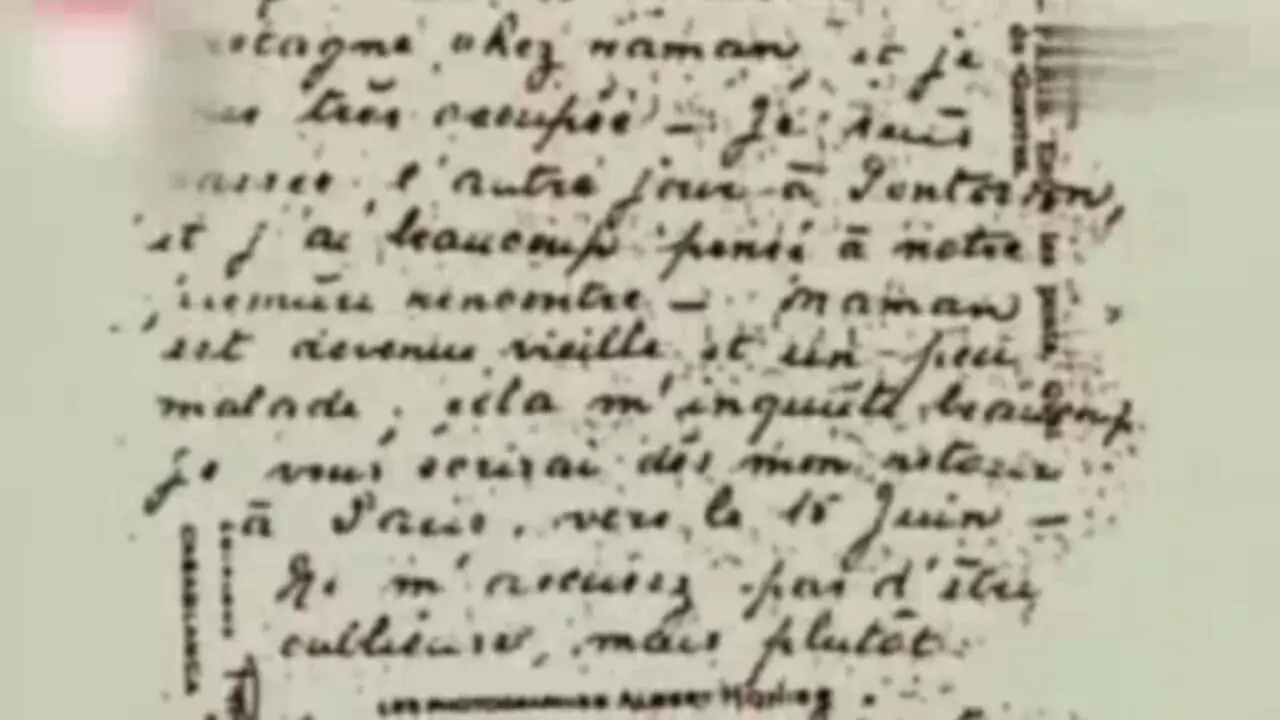 chez maman, et je
très occupée – Je suis
l'autre jour à Pontorson,
et j'ai beaucoup pensé à notre
première rencontre – Maman
est devenue vieille et un peu
malade, cela m'inquiète beaucoup
je vous écrirai dès mon retour
à Paris, vers le 15 Juin –
Ne m'accusez pas d'être
oublieuse, mais plutôt
CASABLANCA
LES PHOTOGRAPHIES ALBERT